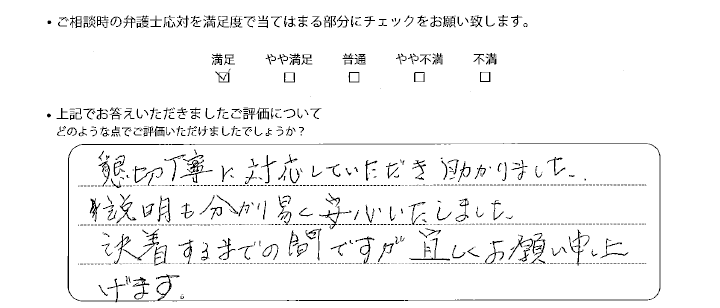 ・ご相談時の弁護士応対を満足度で当てはまる部分にチェックをお願い致します。
満足 やや満足 普通 やや不満 不満
☑ □ □ □ □
・上記でお答えいただきましたご評価について
どのような点でご評価いただけましたでしょうか？
懇切丁寧に対応していただき助かりました。
説明も分かり易く安心いたしました。
決着するまでの間ですが宜しくお願い申し上
げます。